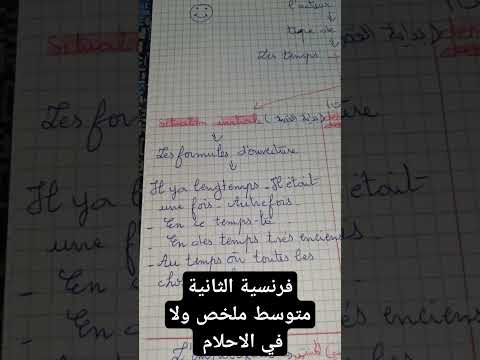 l'auteur
type de
Les temps
situation initiale (بداية القصة)
Les formules d'ouverture
Il ya longtemps - Il était
une fois - Autrefois
- En ce temps-là
- En des temps très enciens
- Au temps où toutes les
فرنسية الثانية
متوسط ملخص ولا
في الاحلام